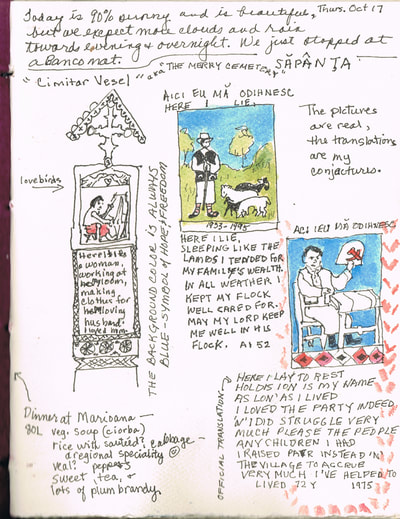 Today is 90% sunny and is beautiful, Thurs. Oct 17
but we expect more clouds and rain
towards evening & overnight. We just stopped at
a Bancomat.
"Cimitar Vesel" aka "THE MERRY CEMETERY" SĂPÂNŢA
AICI EU MĂ ODIHNESC
HERE I LIE,
The pictures
are real,
the translations
are my
conjectures.
lovebirds
Here lies
a woman,
working at
her loom,
making
clothes for
her loving
husband.
I loved man
THE BACKGROUND COLOR IS ALWAYS
BLUE - SYMBOL of HOPE, FREEDOM
1933-1995
HERE I LIE,
SLEEPING LIKE THE
LAMBS I TENDED FOR
MY FAMILY'S WEALTH.
IN ALL WEATHER I
KEPT MY FLOCK
WELL CARED FOR.
MAY MY LORD KEEP
ME WELL IN HIS
FLOCK. A 52
AICI IEU MĂ ODIHNESC
OFFICIAL TRANSLATION
HERE I LAY TO REST
HOLDIS ION IS MY NAME
AS LON' AS I LIVED
I LOVED THE PARTY INDEED
'N' I DID STRUGGLE VERY
MUCH PLEASE THE PEOPLE
ANY CHILDREN I HAD
I RAISED INSTEAD 'N
THE VILLAGE TO ACCRUE
VERY MUCH I'VE HELPED TO
LIVED 72 Y 1975
Dinner at Marioana -
80L veg. soup (ciorba)
rice with sautéed cabbage -
a regional speciality
veal? peppers
sweet, tea, &
lots of plum brandy.